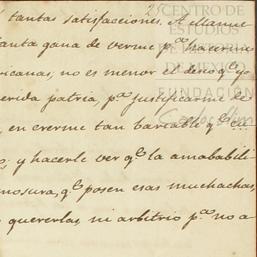 tantas satisfacciones. A Manuel
tanta gana de verme pª hacerme
ricanas, no es menor el deseo qᵉ yo
erida patria, pª justificarme de
, en creerme tan bariable qᵉ
o; y hacerle ver qᵉ la amabili-
mosura, qᵉ posen esas muchachas,
quererlas, ni arbitrio pª no a
CENTRO DE
ESTUDIOS
DE
DE MÉXICO
FUNDACIÓN